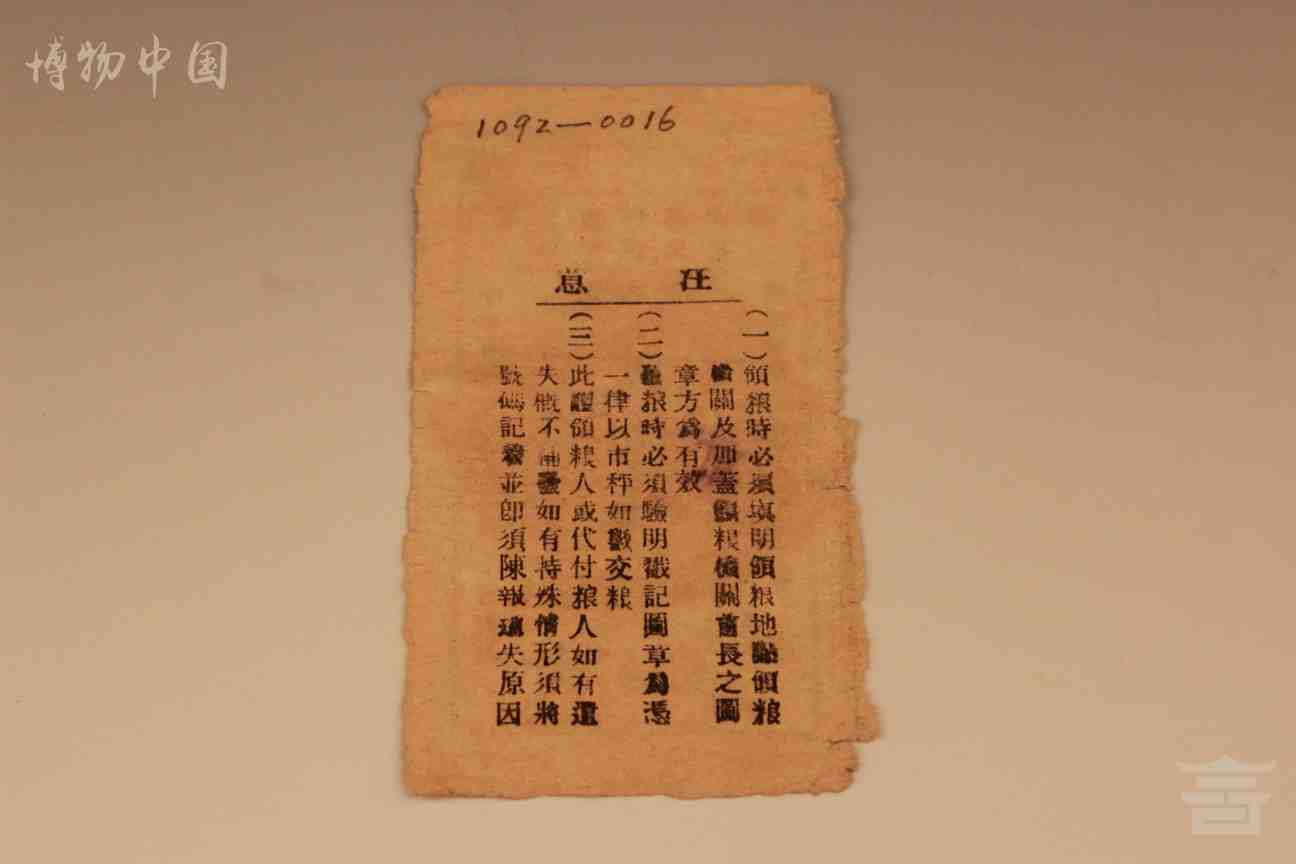 博物中国
1092—0016
注意
(一)領粮時必須填明領粮地點領粮
機關及加蓋領粮機關首長之圖
章方為有效
(二)粮時必須驗明戳記圖章為憑
一律以市秤如數交粮
(三)此證領粮人或代付粮人如有遺
失概不補發如有特殊情形須將
號碼記發並即須陳報遺失原因